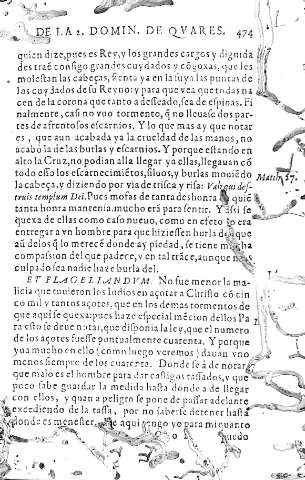 DE LA 2. DOMIN. DE QVARES. 474
quien dize, pues es Rey, y los grandes cargos y dignida
des traē consigo grandes cuydados y cōgoxas, que les
molestan las cabeças, sienta ya en la suya las puntas de
los cuydados de su Reyno: y para que vea que todas na
cen de la corona que tanto a desseado, sea de espinas. Fi
nalmente, casi no vuo tormento, q̃ no lleuase dos par-
tes de afrentosos escarnios. Y lo que mas ay que notar
es, que aun acabada ya la crueldad de las manos, no
acabó la de las burlas y escarnios. Y porque estando en
alto la Cruz, no podian alla llegar ya ellas, llegauan cō
todo esso los escarnecimiētos, siluos, y burlas mouiēdo
la cabeça, y diziendo por via de trisca y risa: Vah qui des-
truis templum Dei. Pues mofas de tanta deshonra a quiē
tanta honra mantenia, mucho erā para sentir. Y assi se
quexa de ellas como caso nueuo, como en efeto lo era
entregar a vn hombre para que hiziessen burla del: que
aū de los q̃ lo merecē donde ay piedad, se tiene mucha
compassion del que padece, y en tal trāce, aunque
culpado sea nadie haze burla del.
Matth. 27.
ET FLAGELLANDVM. No fue menor la ma
licia que tuuieron los Iudios en açotar a Christo cō cin
co mil y tantos açotes, que en los demas tormentos de
que aqui se quexa: pues haze especial mēcion dellos Pa
ra esto se deue notar, que disponia la ley, que el numero
de los açotes fuesse pontualmente quarenta. Y porque
yua mucho en ello (como luego veremos) dauan vno
menos siempre de los cuarenta. Donde se à de notar
que malo es el hombre para dar castigos tassados, y que
poco sabe guardar la medida hasta donde a de llegar
con ellos, y quan a peligro se pone de passar adelante
excediendo de la tassa, por no saberse detener hasta
donde es menester. De aqui tengo yo para mi quanto